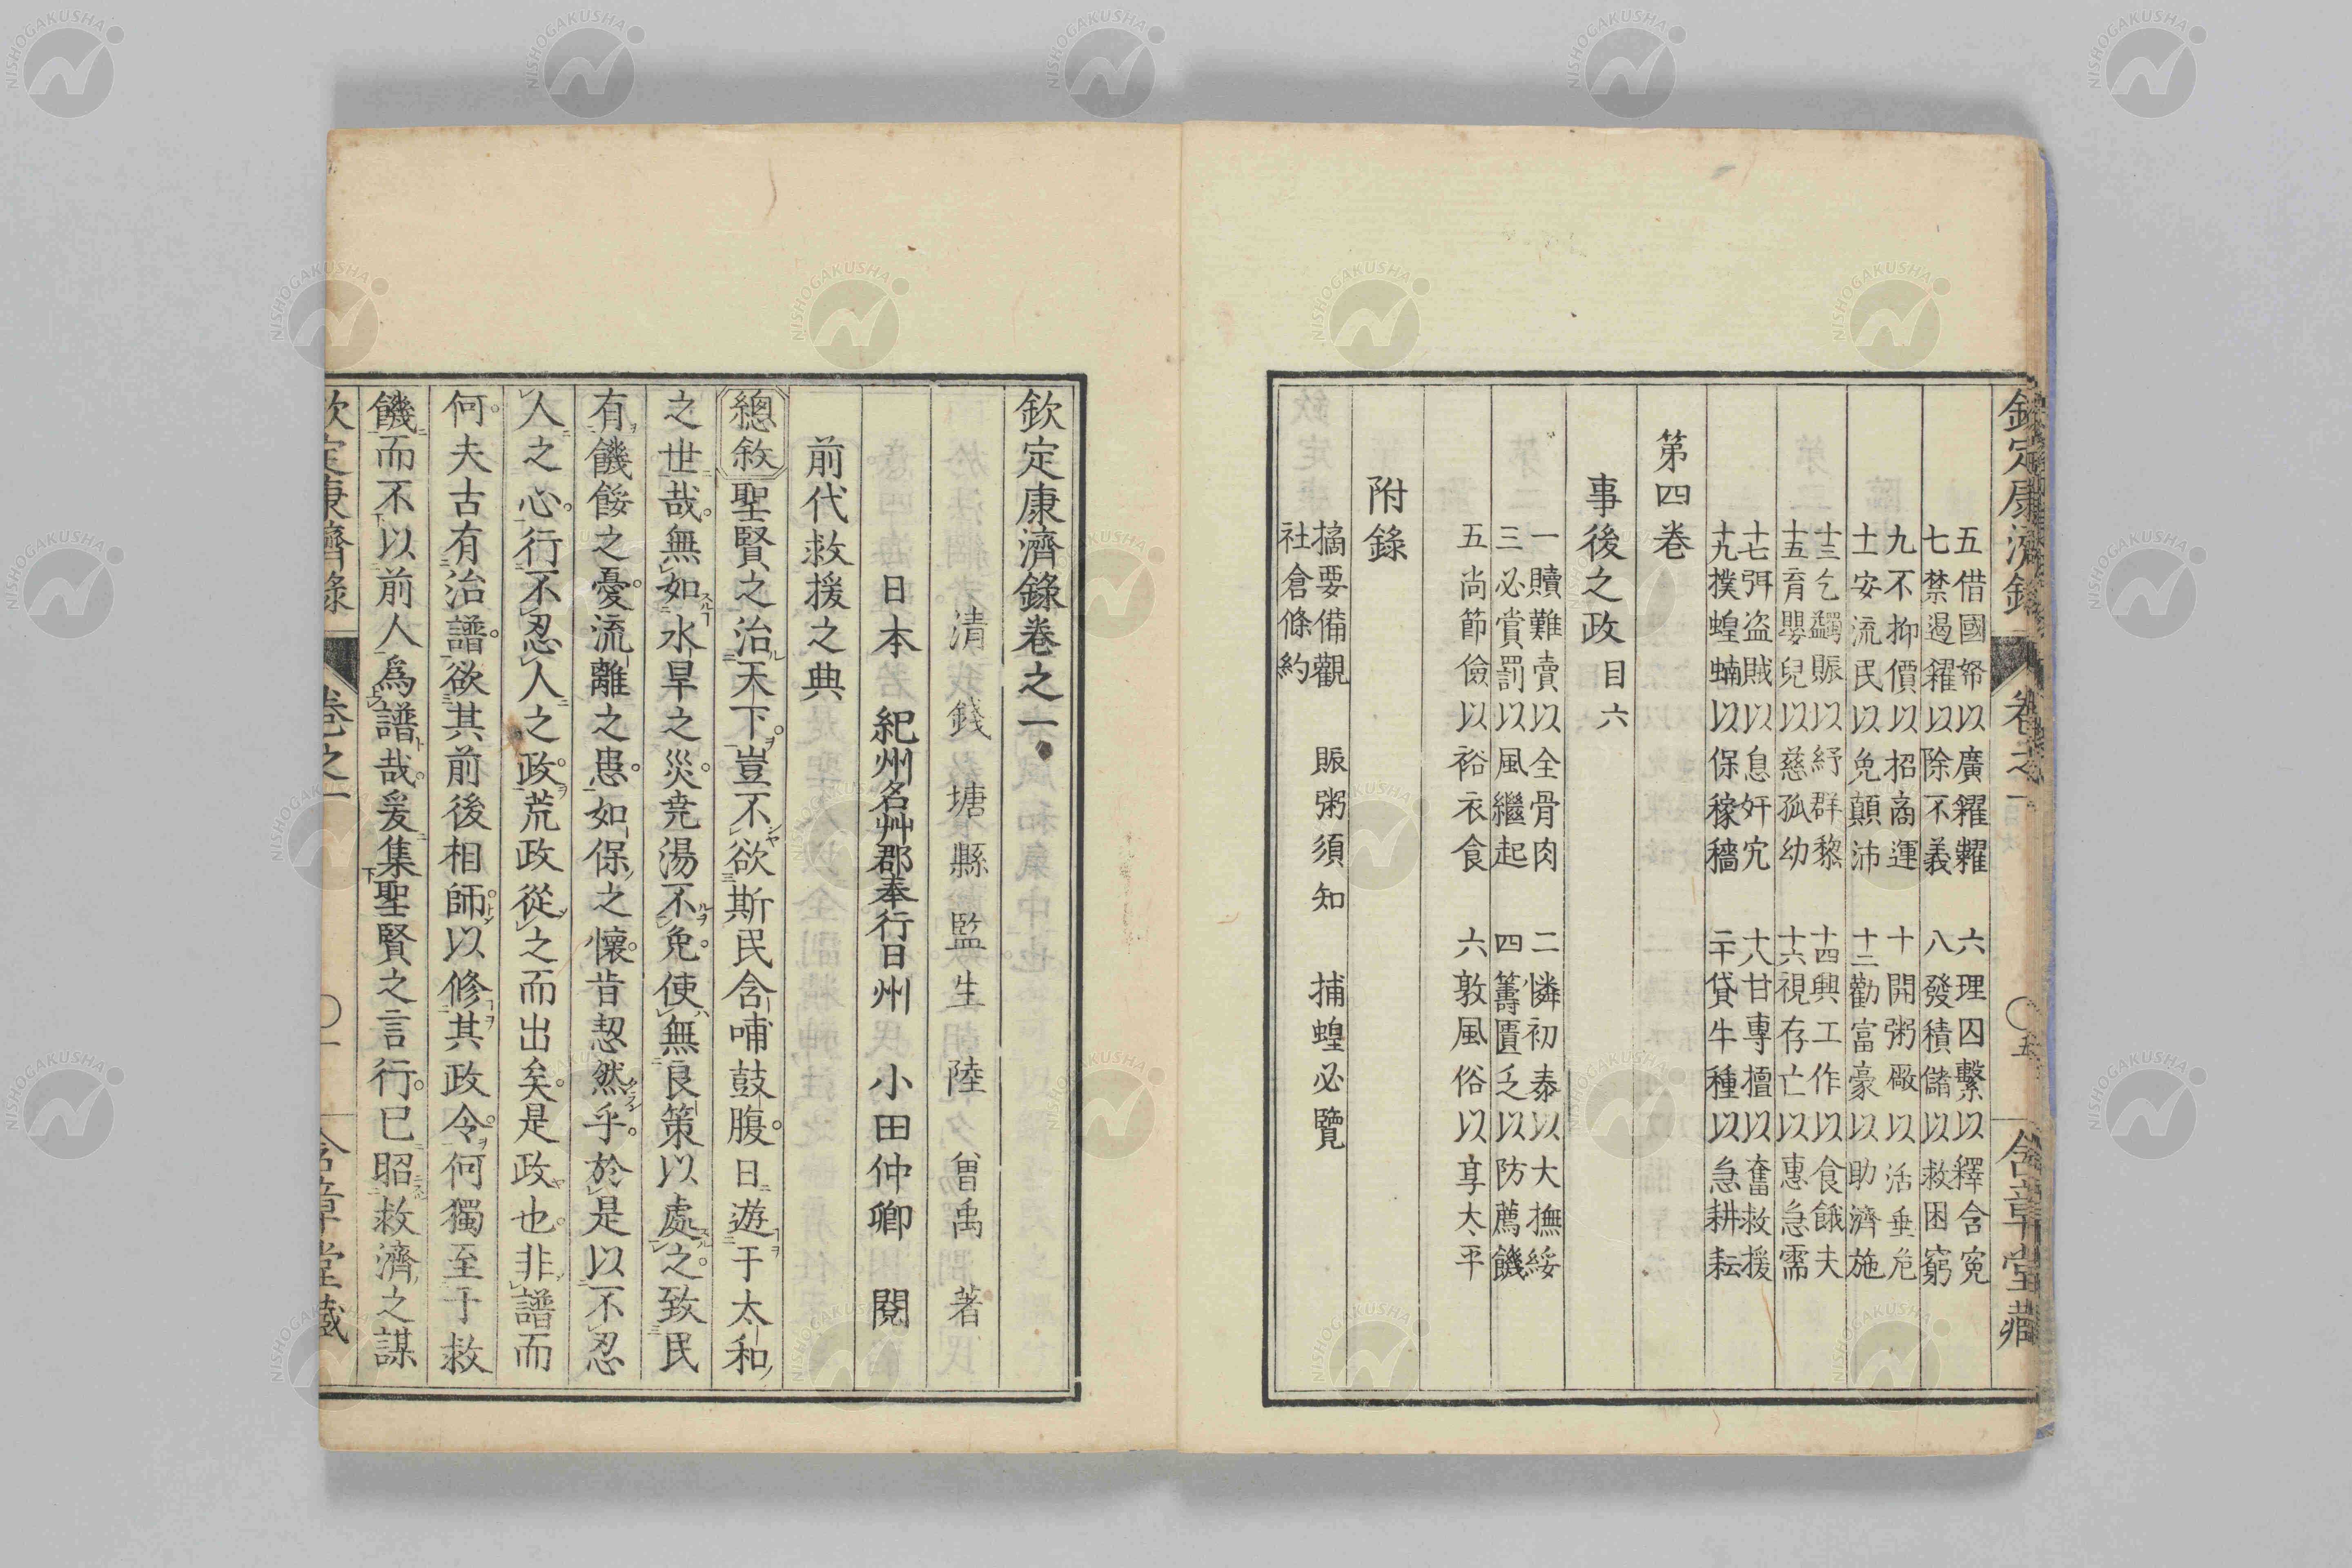 欽定康濟錄 卷之一 〇五 含章堂藏
五借國帑以廣糴糶 六理囚繫以釋含寃
七禁遏糴以除不義 八發積儲以救困窮
九不抑價以招商運 十開粥厰以活垂危
十一安流民以免顛沛 十二勸富豪以助濟施
十三乞蠲賑以紓群黎 十四興工作以食餓夫
十五育嬰兒以慈孤幼 十六視存亡以惠急需
十七弭盗賊以息奸宄 十八甘專擅以奮救援
十九撲蝗蝻以保稼穡 二十貸牛種以急耕耘
第四卷
事後之政 目六
一贖難賣以全骨肉 二憐初泰以大撫綏
三必賞罰以風繼起 四籌匱乏以防薦饑
五尚節儉以裕衣食 六敦風俗以享太平
附錄
摘要備觀 賑粥須知 捕蝗必覽
社倉條約
欽定康濟錄卷之一
清 錢塘縣監生陸曾禹 著
日本 紀州名艸郡奉行日州 小田仲卿 閱
前代救援之典
總敘 聖賢之治天下豈不欲斯民含哺鼓腹日遊于太和
之世哉無如水旱之災尭湯不免使無良策以處之致民
有饑餒之憂流離之患如保之懷昔恝然乎於是以不忍
人之心行不忍人之政荒政從之而出矣是政也非譜而
何夫古有治譜欲其前後相師以修其政令何獨至于救
饑而不以前人爲譜哉爰集聖賢之言行已昭救濟之謀
欽定康濟錄 卷之一 〇一 含章堂藏
NISHOGAKUSHA